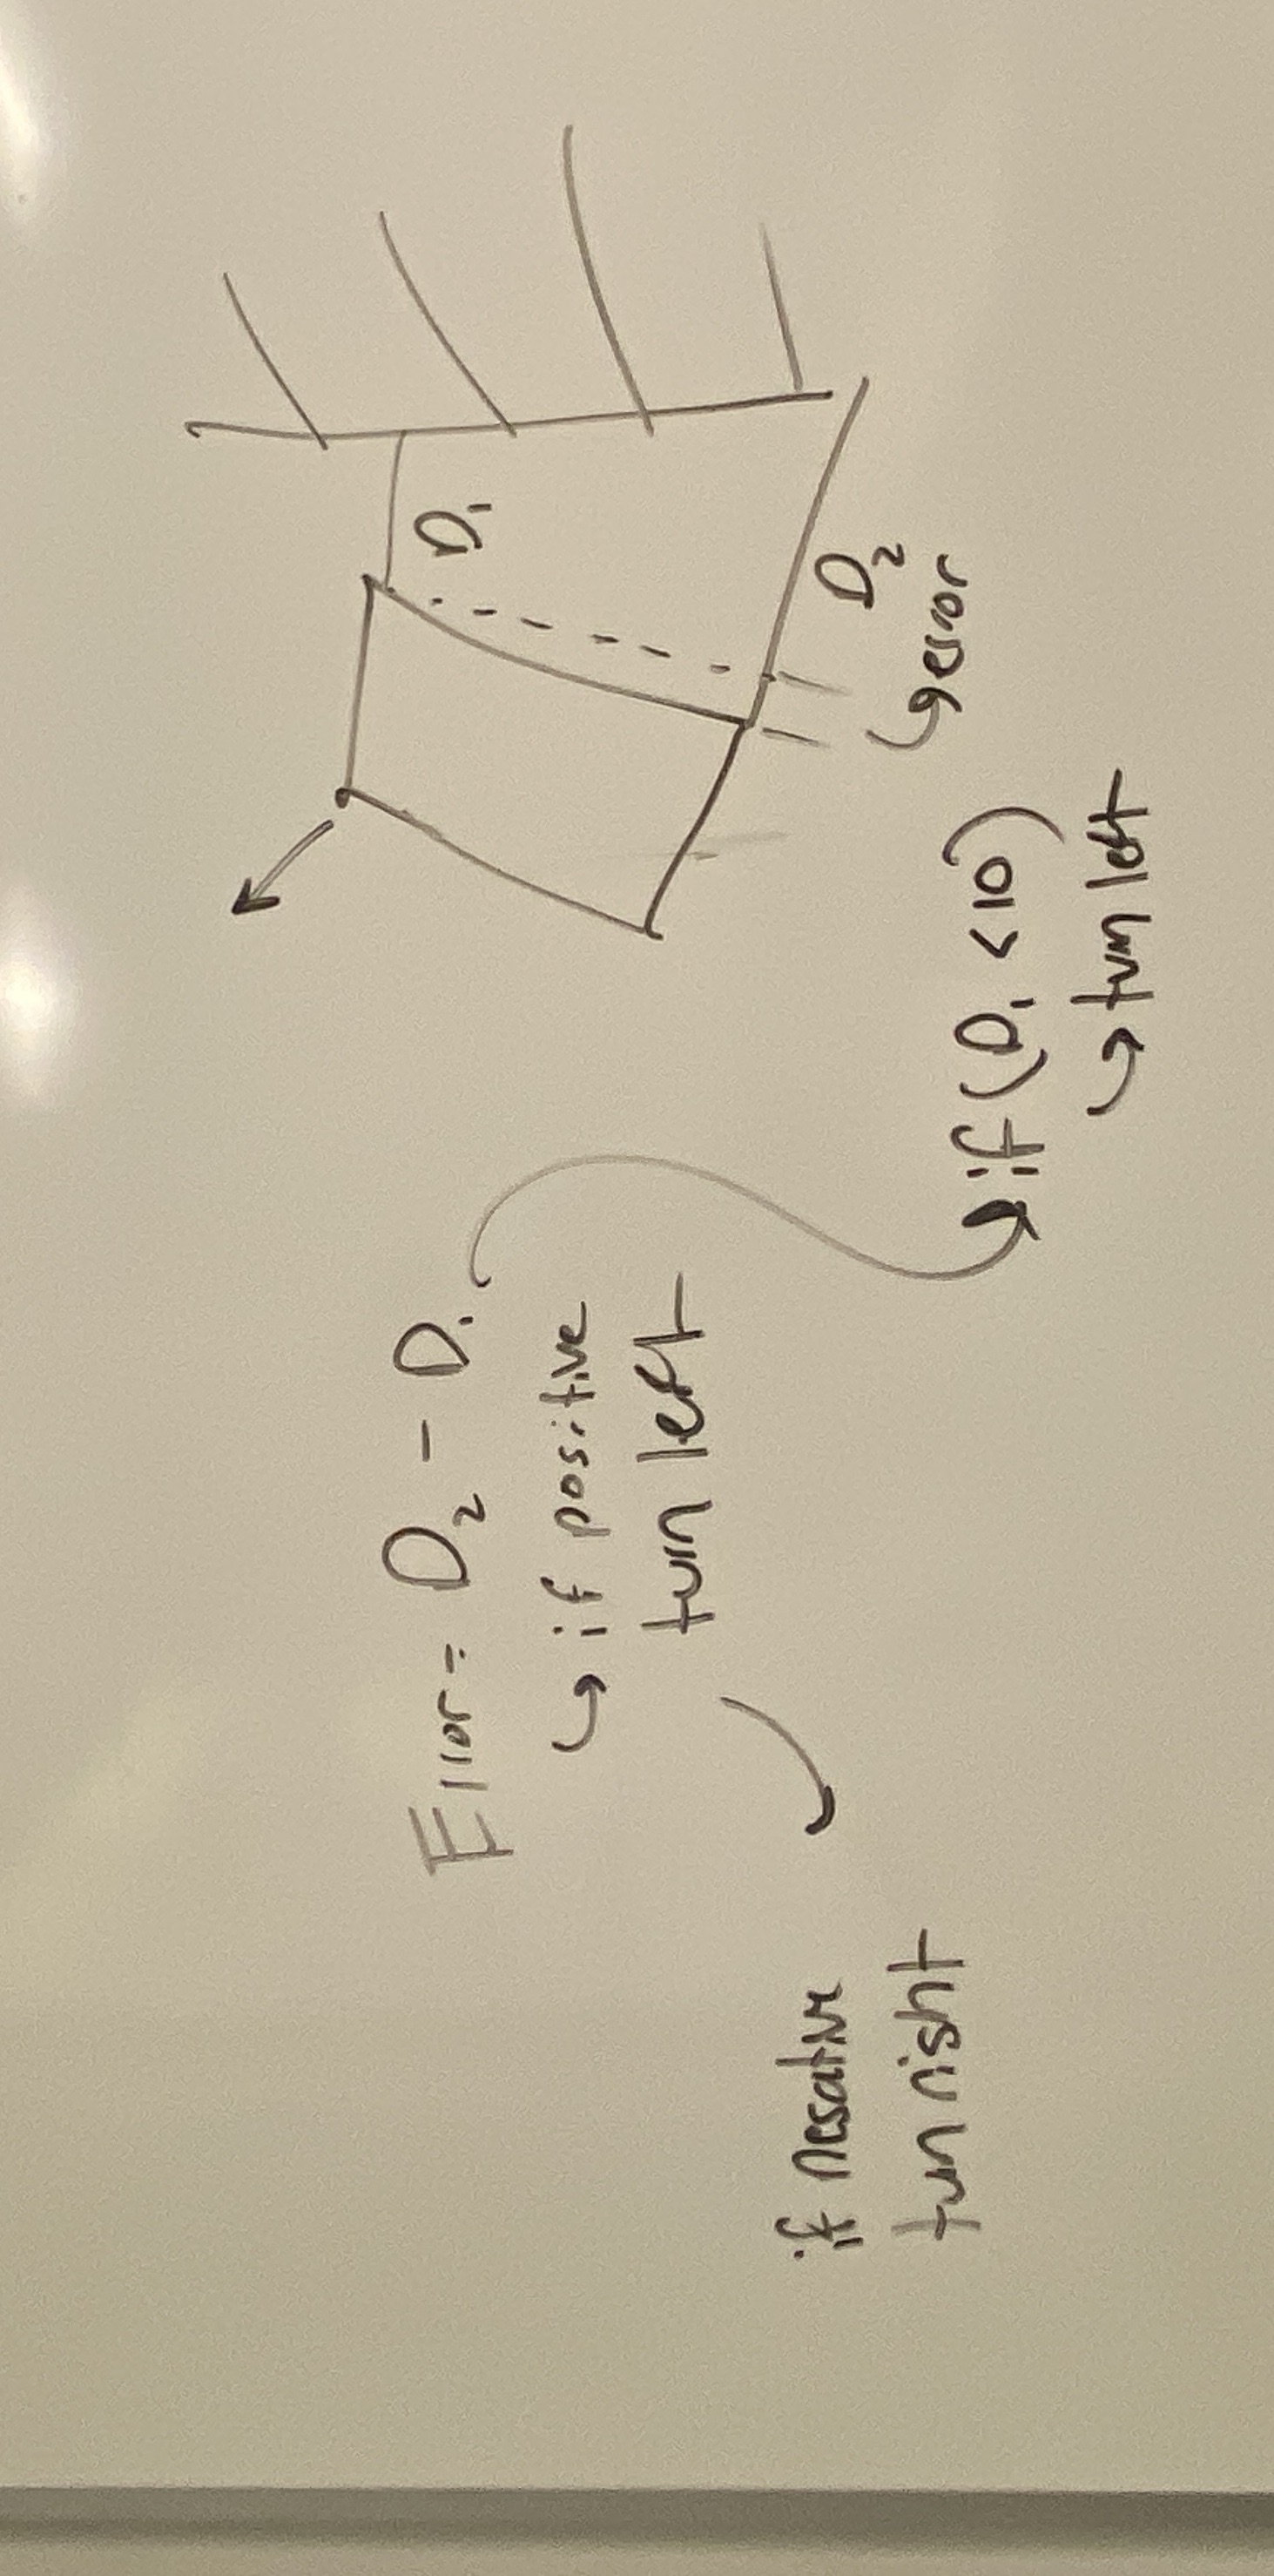 Error = D₂ - D₁
↳ if positive
turn left
if negative
turn right
if (D₁ < 10)
↳ turn left
D₁
D₂
↳ error